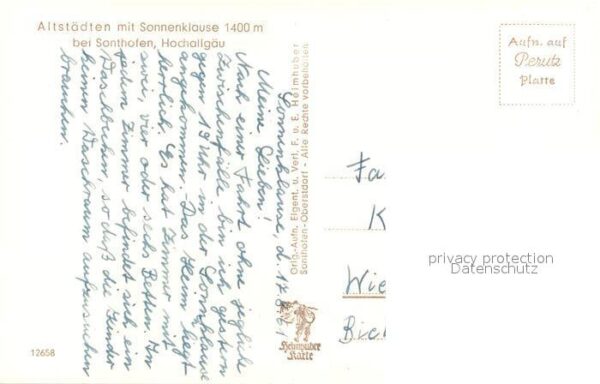 Altstädten mit Sonnenklause 1400 m
bei Sonthofen, Hochallgäu
Sonnenklause, d. 17.
Meine Lieben!
Nach einer Fahrt ohne jegliche
Zwischenfälle bin ich gestern
gegen 19 Uhr in der Sonnenklause
angekommen. Das Heim liegt
herrlich. Es hat Zimmer mit
zwei, vier oder sechs Betten. In
jedem Zimmer befindet sich ein
Waschbecken, so daß die Kinder
keinen Waschraum aufzusuchen
brauchen.
12658
Orig.-Aufn. Eigent. u. Verl. F. u. E. Heimhuber
Sonthofen-Oberstdorf - Alle Rechte vorbehalten
Heimhuber
Karte
Aufn. auf
Perutz
Platte
Fa
K
Wie
privacy protection
Datenschutz